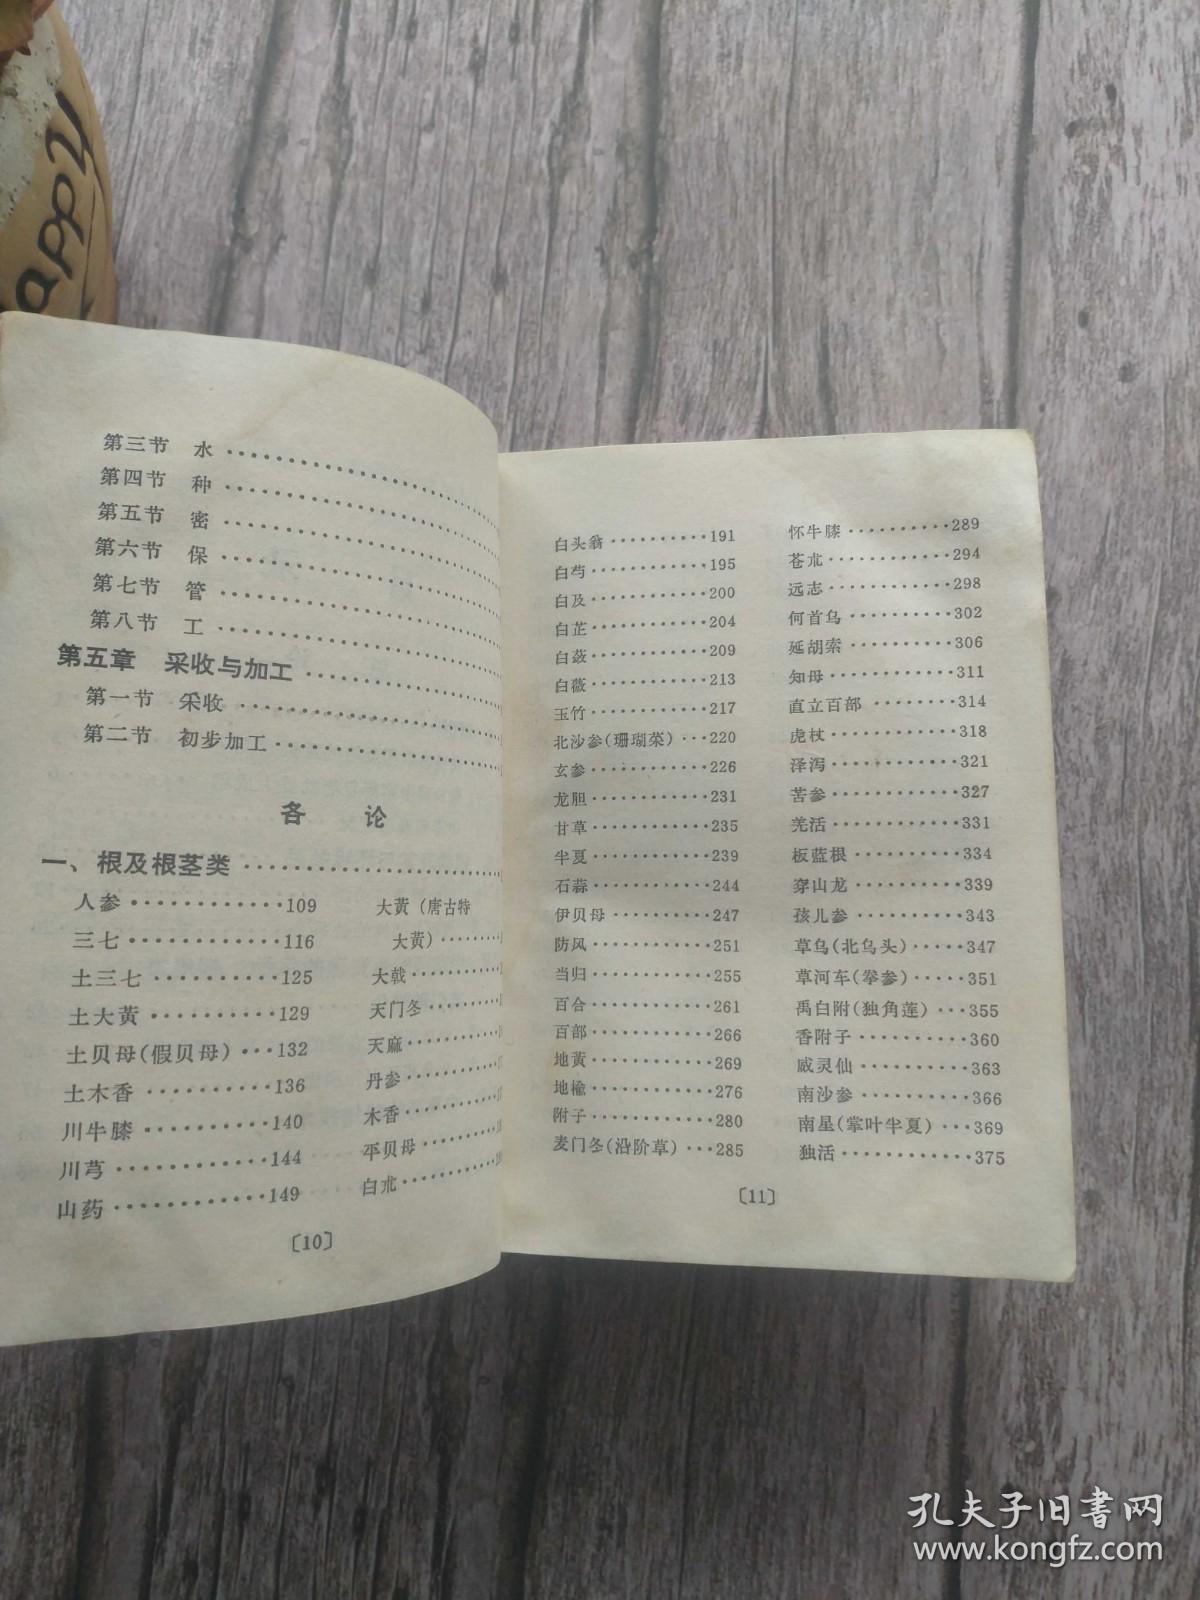 appy
第三节 水
第四节 种
第五节 密
第六节 保
第七节 管
第八节 工
第五章 采收与加工
第一节 采收
第二节 初步加工
各 论
一、根及根茎类
人参…………109
三七…………116
土三七…………125
土大黄…………129
土贝母(假贝母)…132
土木香…………136
川牛膝…………140
川芎…………144
山药…………149
大黄(唐古特
大黄)
大戟
天门冬
天麻
丹参
木香
平贝母
白朮
〔10〕
白头翁…………191
白芍…………195
白及…………200
白芷…………204
白蔹…………209
白薇…………213
玉竹…………217
北沙参(珊瑚菜)…220
玄参…………226
龙胆…………231
甘草…………235
半夏…………239
石蒜…………244
伊贝母…………247
防风…………251
当归…………255
百合…………261
百部…………266
地黄…………269
地榆…………276
附子…………280
麦门冬(沿阶草)…285
怀牛膝…………289
苍朮…………294
远志…………298
何首乌…………302
延胡索…………306
知母…………311
直立百部…………314
虎杖…………318
泽泻…………321
苦参…………327
羌活…………331
板蓝根…………334
穿山龙…………339
孩儿参…………343
草乌(北乌头)……347
草河车(拳参)……351
禹白附(独角莲)…355
香附子…………360
威灵仙…………363
南沙参…………366
南星(掌叶半夏)…369
独活…………375
〔11〕
孔夫子旧书网
www.kongfz.com